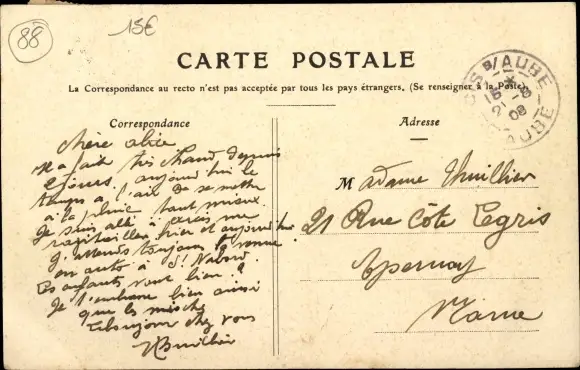 88
15€
CARTE POSTALE
La Correspondance au recto n'est pas acceptée par tous les pays étrangers. (Se renseigner à la Poste).
S/AUBE
21-8
08
AUBE
Correspondance
Adresse
Chère Alice
Il a fait très chaud depuis
2 jours, aujourd'hui le
temps a l'air de se mettre
à la pluie tant mieux.
Je suis allé à Arcis me
ravitailler hier et aujourd'hui
J'attends toujours la venue
en auto à St Nabord.
Les enfants vont bien ?
Je t'embrasse bien ainsi
que les mioche
chez vous
Thuillier
Madame Thuillier
21 Rue Côte Legris
Epernay
Marne